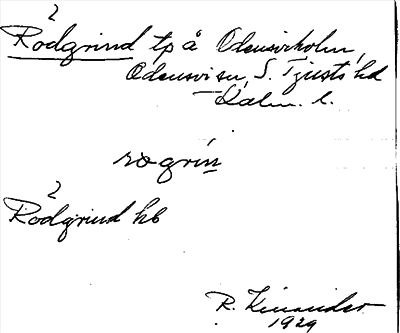 2
Rödgrind tp å Odensviholm,
Odensvi sn, S. Tjusts hd
Kalm. l.
røgrin
2
Rödgrind hb
R. Kinander
1929